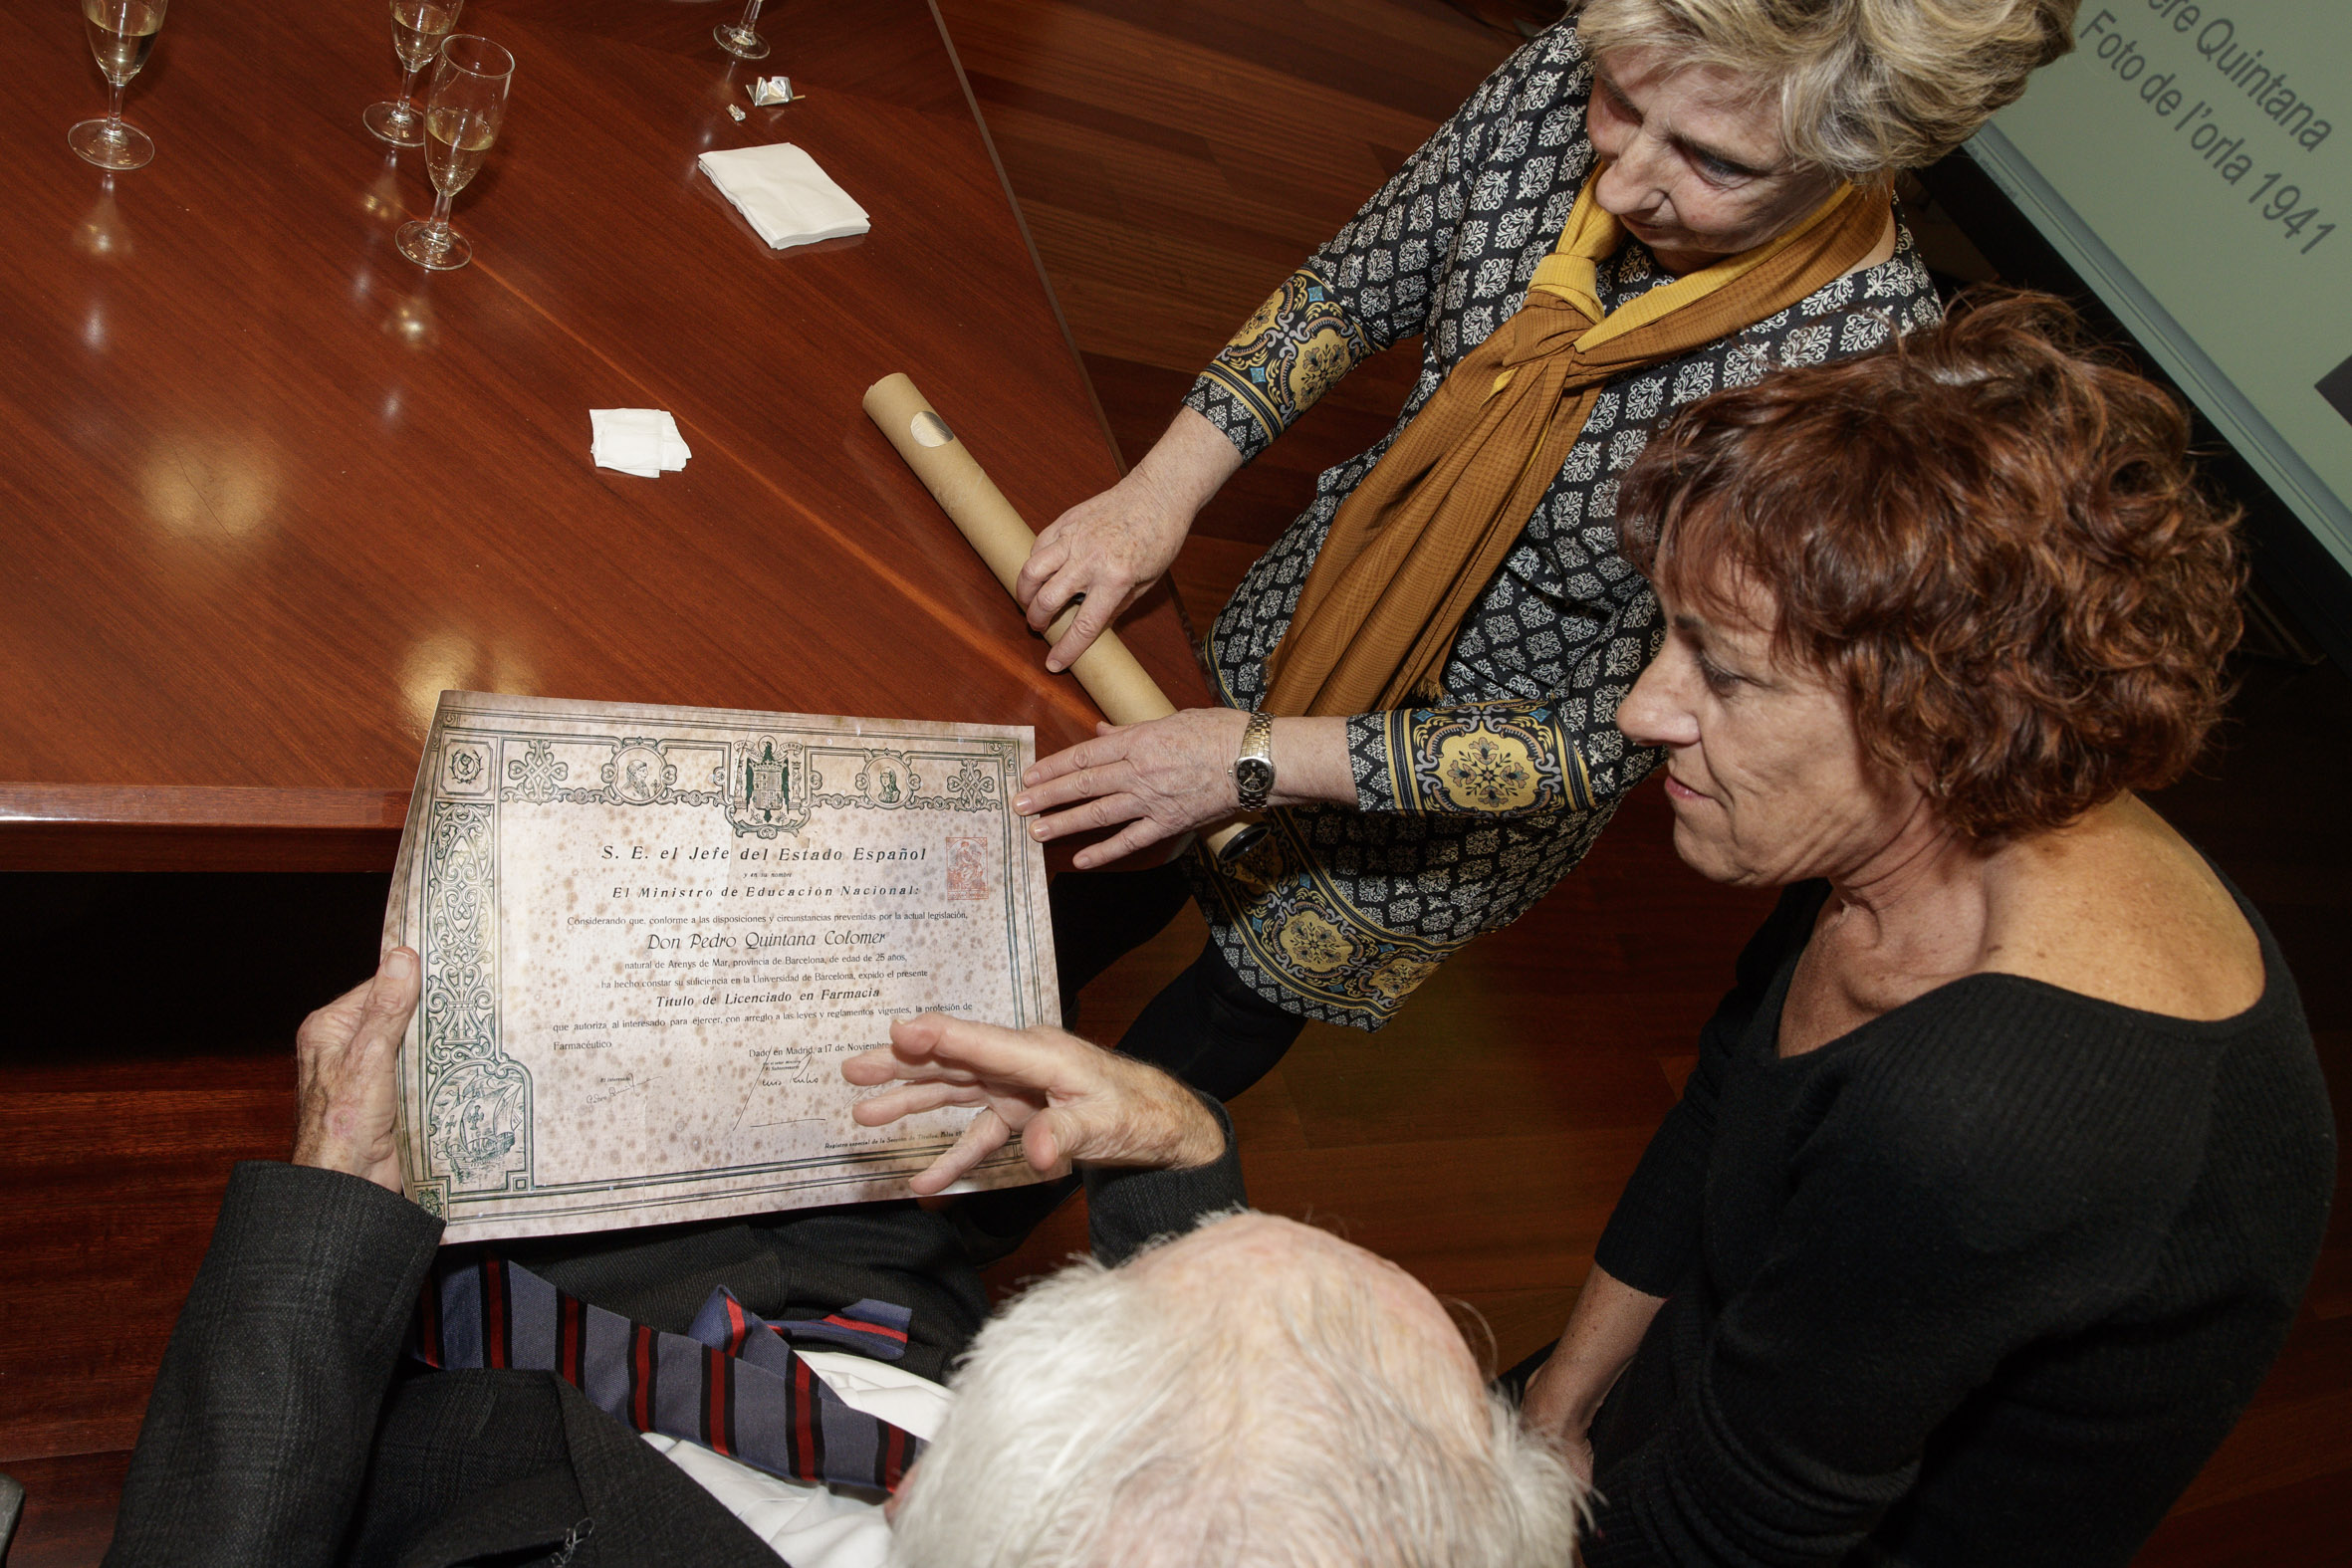 ere Quintana
Foto de l'orla 1941
S. E. el Jefe del Estado Español
y en su nombre
El Ministro de Educación Nacional:
Considerando que, conforme a las disposiciones y circunstancias prevenidas por la actual legislación,
Don Pedro Quintana Colomer
natural de Arenys de Mar, provincia de Barcelona, de edad de 25 años,
ha hecho constar su suficiencia en la Universidad de Barcelona, expido el presente
Título de Licenciado en Farmacia
que autoriza al interesado para ejercer, con arreglo a las leyes y reglamentos vigentes, la profesión de
Farmacéutico
Dado en Madrid, a 17 de Noviembre
Registro especial de la Sección de Títulos, Folio